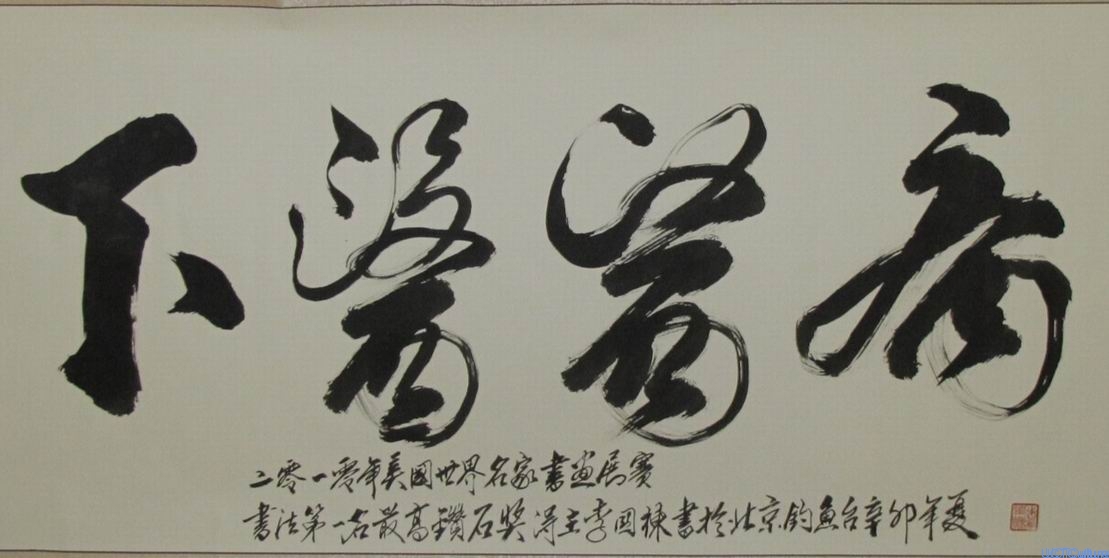 下醫醫病
二零一零年美國世界名家書畫展賽
書法第一名最高鑽石獎得主李国棟書於北京釣魚台辛卯年夏